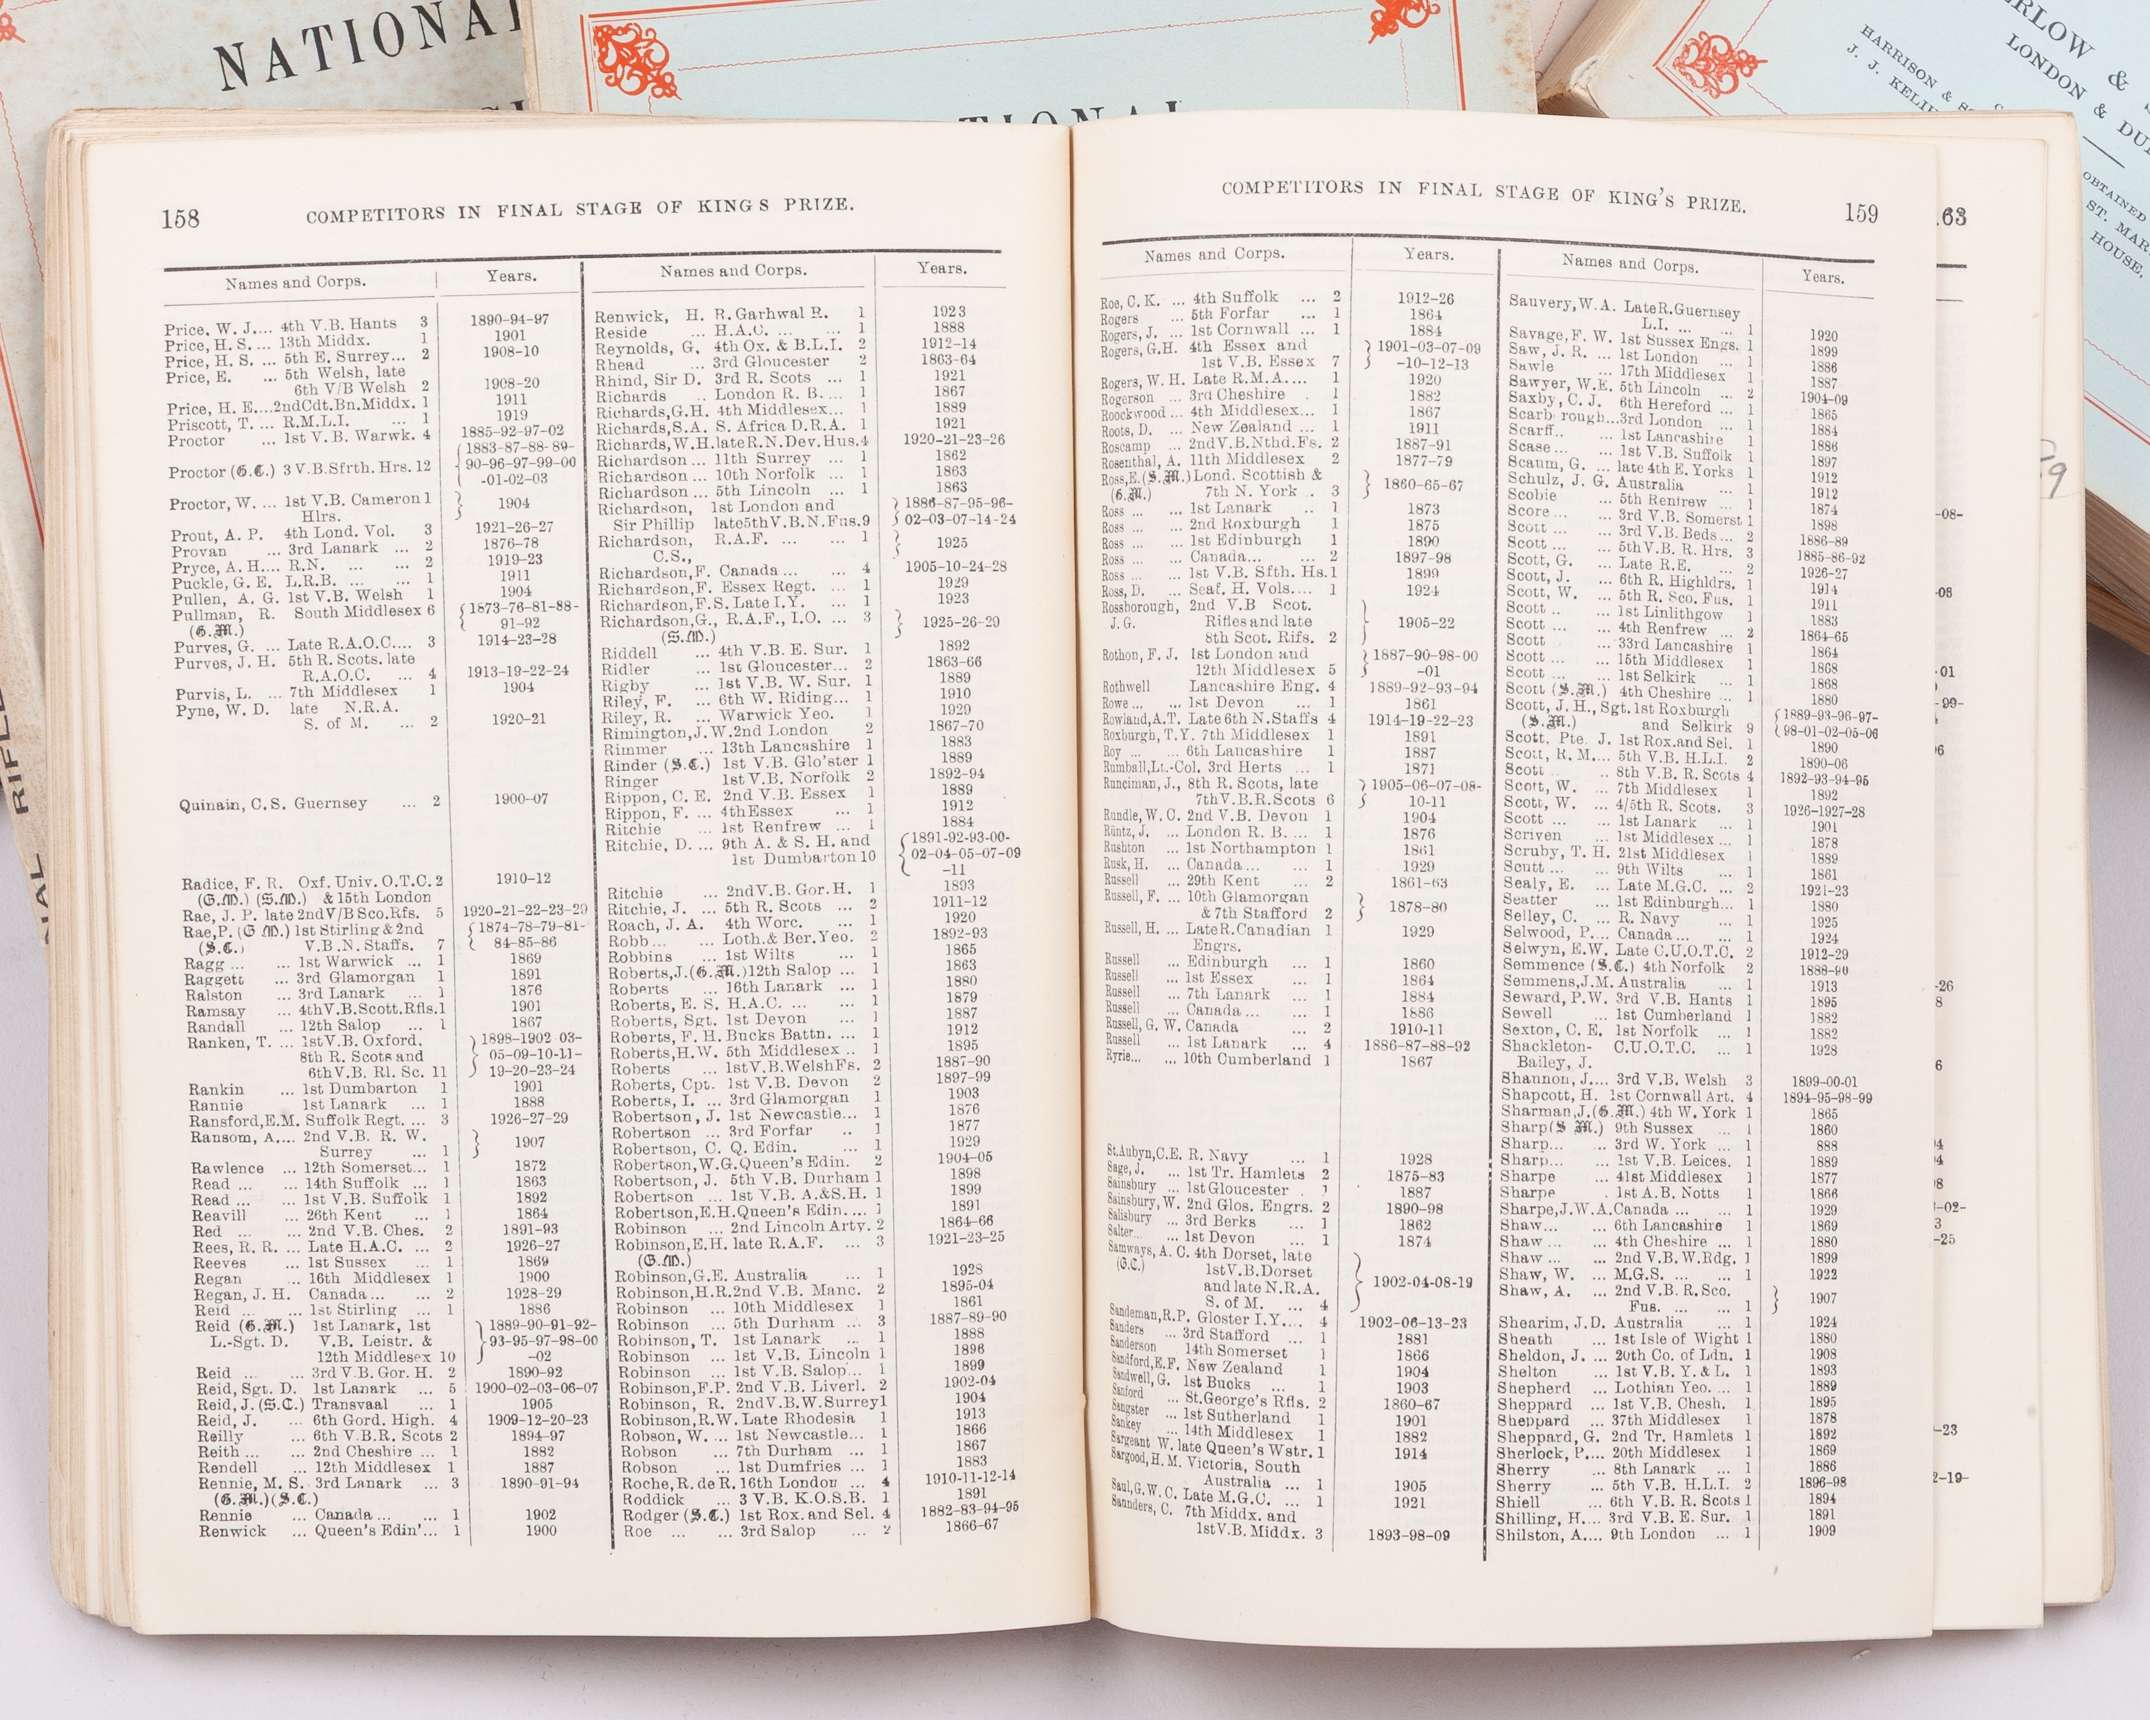 NATIONAL
HARRISON &
J. J.
& 
LONDON &
OBTAINED
ST.
HOUSE,
158
COMPETITORS IN FINAL STAGE OF KING S PRIZE.
Names and Corps. Years.
Price, W. J.... 4th V.B. Hants 3 1890-94-97
Price, H. S. ... 13th Middx. 1 1901
Price, H. S. ... 5th E. Surrey... 2 1908-10
Price, E. ... 5th Welsh, late
6th V/B Welsh 2 1908-20
Price, H. E....2ndCdt.Bn.Middx. 1 1911
Priscott, T. ... R.M.L.I. ... 1 1919
Proctor ... 1st V. B. Warwk. 4 1885-92-97-02
Proctor (G.C.) 3 V.B.Sfrth. Hrs. 12 1883-87-88-89-
90-96-97-99-00
-01-02-03
Proctor, W. ... 1st V.B. Cameron 1 1904
Hlrs.
Prout, A. P. 4th Lond. Vol. 3 1921-26-27
Provan ... 3rd Lanark ... 2 1876-78
Pryce, A. H.... R.N. ... ... 2 1919-23
Puckle, G. E. L.R.B. ... ... 1 1911
Pullen, A. G. 1st V.B. Welsh 1 1904
Pullman, R. South Middlesex 6 1873-76-81-88-
(G.M.) 91-92
Purves, G. ... Late R.A.O.C.... 3 1914-23-28
Purves, J. H. 5th R. Scots. late
R.A.O.C. ... 4 1913-19-22-24
Purvis, L. ... 7th Middlesex 1 1904
Pyne, W. D. late N.R.A.
S. of M. ... 2 1920-21
Quinain, C. S. Guernsey ... 2 1900-07
Radice, F. R. Oxf. Univ. O.T.C. 2 1910-12
(G.M.) (S.M.) & 15th London
Rae, J. P. late 2nd V/B Sco.Rfs. 5 1920-21-22-23-29
Rae,P. (G M.) 1st Stirling & 2nd 1874-78-79-81-
(S.C.) V.B.N. Staffs. 7 84-85-86
Ragg ... ... 1st Warwick ... 1 1869
Raggett ... 3rd Glamorgan 1 1891
Ralston ... 3rd Lanark ... 1 1876
Ramsay ... 4thV.B.Scott.Rfls.1 1901
Randall ... 12th Salop ... 1 1867
Ranken, T. ... 1stV.B. Oxford, 1898-1902 03-
8th R. Scots and 05-09-10-11-
6thV.B. Rl. Sc. 11 19-20-23-24
Rankin ... 1st Dumbarton 1 1901
Rannie 1st Lanark ... 1 1888
Ransford,E.M. Suffolk Regt. ... 3 1926-27-29
Ransom, A.... 2nd V.B. R. W. 1907
Surrey ... 1
Rawlence ... 12th Somerset... 1 1872
Read ... ... 14th Suffolk ... 1 1863
Read ... ... 1st V.B. Suffolk 1 1892
Reavill ... 26th Kent ... 1 1864
Red ... ... 2nd V.B. Ches. 2 1891-93
Rees, R. R. ... Late H.A.C. ... 2 1926-27
Reeves ... 1st Sussex ... 1 1869
Regan ... 16th Middlesex 1 1900
Regan, J. H. Canada ... ... 2 1928-29
Reid ... ... 1st Stirling ... 1 1886
Reid (G.M.) 1st Lanark, 1st 1889-90-91-92-
L.-Sgt. D. V.B. Leistr. & 93-95-97-98-00
12th Middlesex 10 -02
Reid ... ... 3rd V.B. Gor. H. 2 1890-92
Reid, Sgt. D. 1st Lanark ... 5 1900-02-03-06-07
Reid, J. (S.C.) Transvaal ... 1 1905
Reid, J. ... 6th Gord. High. 4 1909-12-20-23
Reilly ... 6th V.B.R. Scots 2 1894-97
Reith ... ... 2nd Cheshire ... 1 1882
Rendell ... 12th Middlesex 1 1887
Rennie, M. S. 3rd Lanark ... 3 1890-91-94
(G.M.)(S.C.)
Rennie ... Canada ... ... 1 1902
Renwick ... Queen's Edin'... 1 1900
Names and Corps. Years.
Renwick, H. R. Garhwal R. 1 1923
Reside ... H.A.C. ... ... 1 1888
Reynolds, G. 4th Ox. & B.L.I. 2 1912-14
Rhead ... 3rd Gloucester 2 1863-64
Rhind, Sir D. 3rd R. Scots ... 1 1921
Richards .. London R. B. ... 1 1867
Richards,G.H. 4th Middlesex... 1 1889
Richards,S.A. S. Africa D.R.A. 1 1921
Richards,W.H.lateR.N.Dev.Hus.4 1920-21-23-26
Richardson ... 11th Surrey ... 1 1862
Richardson ... 10th Norfolk ... 1 1863
Richardson ... 5th Lincoln ... 1 1863
Richardson, 1st London and 1886-87-95-96-
Sir Phillip late5thV.B.N.Fus.9 02-03-07-14-24
Richardson, R.A.F. ... ... 1 1925
C.S.,
Richardson,F. Canada ... ... 4 1905-10-24-28
Richardson,F. Essex Regt. ... 1 1929
Richardson,F.S. Late I.Y. ... 1 1923
Richardson,G., R.A.F., I.O. ... 3 1925-26-29
(S.M.)
Riddell ... 4th V.B. E. Sur. 1 1892
Ridler ... 1st Gloucester... 2 1863-66
Rigby ... 1st V.B. W. Sur. 1 1889
Riley, F. ... 6th W. Riding... 1 1910
Riley, R. ... Warwick Yeo. 1 1929
Rimington,J.W.2nd London 2 1867-70
Rimmer ... 13th Lancashire 1 1883
Rinder (S.C.) 1st V.B. Glo'ster 1 1889
Ringer 1st V.B. Norfolk 2 1892-94
Rippon, C. E. 2nd V.B. Essex 1 1889
Rippon, F. ... 4thEssex ... 1 1912
Ritchie ... 1st Renfrew ... 1 1884
Ritchie, D. ... 9th A. & S. H. and 1891-92-93-00-
1st Dumbarton 10 02-04-05-07-09
-11
Ritchie ... 2ndV.B. Gor. H. 1 1893
Ritchie, J. ... 5th R. Scots ... 2 1911-12
Roach, J. A. 4th Worc. ... 1 1920
Robb ... ... Loth.& Ber.Yeo. 2 1892-93
Robbins ... 1st Wilts ... 1 1865
Roberts,J.(G.M.)12th Salop ... 1 1863
Roberts ... 16th Lanark ... 1 1880
Roberts, E. S. H.A.C. ... ... 1 1879
Roberts, Sgt. 1st Devon ... 1 1887
Roberts, F. H. Bucks Battn. ... 1 1912
Roberts,H.W. 5th Middlesex .. 1 1895
Roberts ... 1stV.B.WelshFs. 2 1887-90
Roberts, Cpt. 1st V.B. Devon 2 1897-99
Roberts, I. ... 3rd Glamorgan 1 1903
Robertson, J. 1st Newcastle... 1 1876
Robertson ... 3rd Forfar .. 1 1877
Robertson, C. Q. Edin. ... 1 1929
Robertson,W.G.Queen's Edin. 2 1904-05
Robertson, J. 5th V.B. Durham 1 1898
Robertson ... 1st V.B. A.&S.H. 1 1899
Robertson,E.H.Queen's Edin.... 1 1891
Robinson ... 2nd Lincoln Arty. 2 1864-66
Robinson,E.H. late R.A.F. ... 3 1921-23-25
(G.M.)
Robinson,G.E. Australia ... 1 1928
Robinson,H.R.2nd V.B. Manc. 2 1895-04
Robinson ... 10th Middlesex 1 1861
Robinson ... 5th Durham ... 3 1887-89-90
Robinson, T. 1st Lanark ... 1 1888
Robinson ... 1st V.B. Lincoln 1 1896
Robinson ... 1st V.B. Salop... 1 1899
Robinson,F.P. 2nd V.B. Liverl. 2 1902-04
Robinson, R. 2ndV.B.W.Surrey1 1904
Robinson,R.W.Late Rhodesia 1 1913
Robson, W. ... 1st Newcastle... 1 1866
Robson ... 7th Durham ... 1 1867
Robson ... 1st Dumfries ... 1 1883
Roche,R. de R. 16th London ... 4 1910-11-12-14
Roddick ... 3 V.B. K.O.S.B. 1 1891
Rodger (S.C.) 1st Rox. and Sel. 4 1882-83-94-95
Roe ... ... 3rd Salop ... 2 1866-67
COMPETITORS IN FINAL STAGE OF KING'S PRIZE.
159
Names and Corps. Years.
Roe, C. K. ... 4th Suffolk ... 2 1912-26
Rogers ... 5th Forfar ... 1 1864
Rogers, J. ... 1st Cornwall ... 1 1884
Rogers, G.H. 4th Essex and 1901-03-07-09
1st V.B. Essex 7 -10-12-13
Rogers, W. H. Late R.M.A.... 1 1920
Rogerson ... 3rd Cheshire . 1 1882
Roockwood ... 4th Middlesex... 1 1867
Roots, D. ... New Zealand ... 1 1911
Roscamp ... 2ndV.B.Nthd.Fs. 2 1887-91
Rosenthal, A. 11th Middlesex 2 1877-79
Ross,E.(S.M.) Lond. Scottish & 1860-65-67
(G.M.) 7th N. York . 3
Ross ... ... 1st Lanark .. 1 1873
Ross ... ... 2nd Roxburgh 1 1875
Ross ... ... 1st Edinburgh 1 1890
Ross ... ... Canada... ... 2 1897-98
Ross ... ... 1st V.B. Sfth. Hs.1 1899
Ross, D. ... Seaf. H. Vols.... 1 1924
Rossborough, 2nd V.B Scot.
J. G. Rifles and late 1905-22
8th Scot. Rifs. 2
Rothon, F. J. 1st London and 1887-90-98-00
12th Middlesex 5 -01
Rothwell Lancashire Eng. 4 1889-92-93-94
Rowe ... ... 1st Devon ... 1 1861
Rowland,A.T. Late 6th N.Staffs 4 1914-19-22-23
Roxburgh, T.Y. 7th Middlesex 1 1891
Roy ... ... 6th Lancashire 1 1887
Rumball,Lt.-Col. 3rd Herts ... 1 1871
Runciman, J., 8th R. Scots, late 1905-06-07-08-
7thV.B.R.Scots 6 10-11
Rundle, W. C. 2nd V.B. Devon 1 1904
Rüntz, J. ... London R. B. ... 1 1876
Rushton ... 1st Northampton 1 1861
Rusk, H. ... Canada ... ... 1 1929
Russell ... 29th Kent ... 2 1861-63
Russell, F. ... 10th Glamorgan 1878-80
& 7th Stafford 2
Russell, H. ... LateR.Canadian 1 1929
Engrs.
Russell ... Edinburgh ... 1 1860
Russell ... 1st Essex ... 1 1864
Russell ... 7th Lanark ... 1 1884
Russell ... Canada ... ... 1 1886
Russell, G. W. Canada ... 2 1910-11
Russell ... 1st Lanark ... 4 1886-87-88-92
Ryrie... ... 10th Cumberland 1 1867
St.Aubyn,C.E. R. Navy ... 1 1928
Sage, J. ... 1st Tr. Hamlets 2 1875-83
Sainsbury ... 1st Gloucester . 1 1887
Sainsbury, W. 2nd Glos. Engrs. 2 1890-98
Salisbury ... 3rd Berks ... 1 1862
Salter... ... 1st Devon ... 1 1874
Samways, A. C. 4th Dorset, late
(G.C.) 1stV.B.Dorset
and late N.R.A. 1902-04-08-19
S. of M. ... 4
Sandeman,R.P. Gloster I.Y.... 4 1902-06-13-23
Sanders ... 3rd Stafford ... 1 1881
Sanderson 14th Somerset 1 1866
Sandford,E.F. New Zealand 1 1904
Sandwell, G. 1st Bucks ... 1 1903
Sanford ... St.George's Rfls. 2 1860-67
Sangster ... 1st Sutherland 1 1901
Sankey ... 14th Middlesex 1 1882
Sargeant W. late Queen's Wstr. 1 1914
Sargood, H. M. Victoria, South
Australia ... 1 1905
Saul,G.W.C. Late M.G.C. ... 1 1921
Saunders, C. 7th Middx. and
1stV.B. Middx. 3 1893-98-09
Names and Corps. Years.
Sauvery,W.A. LateR.Guernsey
L.I. ... ... 1 1920
Savage,F. W. 1st Sussex Engs. 1 1899
Saw, J. R. ... 1st London 1 1886
Sawle ... 17th Middlesex 1 1887
Sawyer, W.E. 5th Lincoln ... 2 1904-09
Saxby, C. J. 6th Hereford ... 1 1865
Scarb rough...3rd London ... 1 1884
Scarff.. ... 1st Lancashire 1 1886
Scase ... ... 1st V.B. Suffolk 1 1897
Scaum, G. ... late 4th E. Yorks 1 1912
Schulz, J. G. Australia ... 1 1912
Scobie ... 5th Renfrew ... 1 1874
Score ... ... 3rd V.B. Somerst 1 1898
Scott ... ... 3rd V.B. Beds... 2 1886-89
Scott ... ... 5thV.B. R. Hrs. 3 1885-86-92
Scott, G. ... Late R.E. ... 2 1926-27
Scott, J. ... 6th R. Highldrs. 1 1914
Scott, W. ... 5th R. Sco. Fus. 1 1911
Scott .. ... 1st Linlithgow 1 1883
Scott ... ... 4th Renfrew ... 2 1864-65
Scott ... 33rd Lancashire 1 1864
Scott ... ... 15th Middlesex 1 1868
Scott ... ... 1st Selkirk ... 1 1868
Scott (S.M.) 4th Cheshire ... 1 1880
Scott, J. H., Sgt. 1st Roxburgh 1889-93-96-97-
(S.M.) and Selkirk 9 98-01-02-05-06
Scott, Pte. J. 1st Rox.and Sel. 1 1890
Scott, R. M.... 5th V.B. H.L.I. 2 1890-06
Scott .. .. 8th V.B. R. Scots 4 1892-93-94-95
Scott, W. ... 7th Middlesex 1 1892
Scott, W. ... 4/5th R. Scots. 3 1926-1927-28
Scott ... ... 1st Lanark ... 1 1901
Scriven ... 1st Middlesex ... 1 1878
Scruby, T. H. 21st Middlesex 1 1889
Scutt ... ... 9th Wilts ... 1 1861
Sealy, E. ... Late M.G.C. ... 2 1921-23
Seatter ... 1st Edinburgh... 1 1880
Selley, C. ... R. Navy ... 1 1925
Selwood, P.... Canada ... ... 1 1924
Selwyn, E.W. Late C.U.O.T.C. 2 1912-29
Semmence (S.C.) 4th Norfolk 2 1888-90
Semmens,J.M. Australia ... 1 1913
Seward, P.W. 3rd V.B. Hants 1 1895
Sewell ... 1st Cumberland 1 1882
Sexton, C. E. 1st Norfolk ... 1 1882
Shackleton- C.U.O.T.C. ... 1 1928
Bailey, J.
Shannon, J.... 3rd V.B. Welsh 3 1899-00-01
Shapcott, H. 1st Cornwall Art. 4 1894-95-98-99
Sharman,J.(G.M.) 4th W. York 1 1865
Sharp(S M.) 9th Sussex ... 1 1860
Sharp... ... 3rd W. York ... 1 888
Sharp... ... 1st V.B. Leices. 1 1889
Sharpe ... 41st Middlesex 1 1877
Sharpe . 1st A.B. Notts 1 1866
Sharpe,J.W.A.Canada ... ... 1 1929
Shaw... ... 6th Lancashire 1 1869
Shaw ... ... 4th Cheshire ... 1 1880
Shaw ... ... 2nd V.B.W.Rdg. 1 1899
Shaw, W. ... M.G.S. ... ... 1 1922
Shaw, A. ... 2nd V.B. R. Sco. 1907
Fus. ... ... 1
Shearim, J.D. Australia ... 1 1924
Sheath ... 1st Isle of Wight 1 1880
Sheldon, J. ... 20th Co. of Ldn. 1 1908
Shelton ... 1st V.B. Y. & L. 1 1893
Shepherd ... Lothian Yeo. ... 1 1889
Sheppard ... 1st V.B. Chesh. 1 1895
Sheppard ... 37th Middlesex 1 1878
Sheppard, G. 2nd Tr. Hamlets 1 1892
Sherlock, P.... 20th Middlesex 1 1869
Sherry ... 8th Lanark ... 1 1886
Sherry ... 5th V.B. H.L.I. 2 1896-98
Shiell ... 6th V.B. R. Scots 1 1894
Shilling, H.... 3rd V.B. E. Sur. 1 1891
Shilston, A.... 9th London ... 1 1909
63